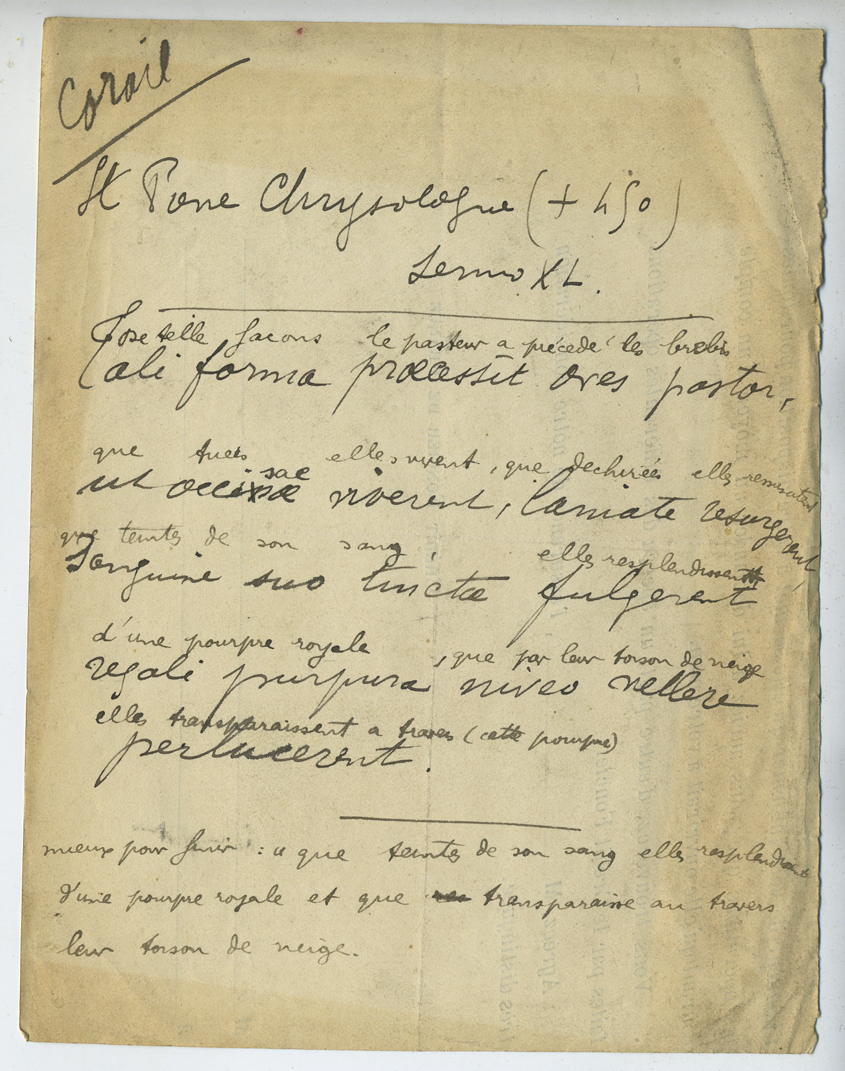 Corail
St Pierre Chrysologue (+ 450)
Sermo XL.
De telle façons le pasteur a précédé les brebis
Tali forma præcessit oves pastor,
que tuées elles vivent, que dechirées elles ressuscitent
sae
ut occisæ viverent, laniate resurgerent,
que teintes de son sang, elles resplendissent
Sanguine suo tinctæ fulgerent
d'une pourpre royale, que par leur toison de neige
regali purpura niveo vellere
elles transparaissent a travers (cette pourpre)
perlucerent.
mieux pour finir : « que teintes de son sang elles resplendissent
d'une pourpre royale et que transparaisse au travers
leur toison de neige.